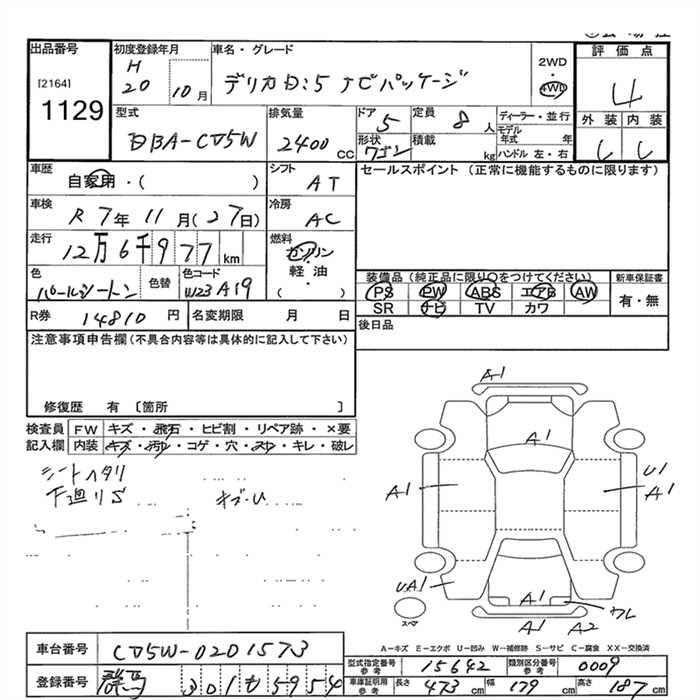 出品番号
[2164]
1129
初度登録年月
H
20 10月
車名・グレード
デリカD:5 ナビパッケージ
2WD
・
4WD
評価点
4
外装 内装
型式
DBA-CV5W
排気量
2400 CC
ドア 5
形状 ワゴン
定員 8 人
積載 kg
ディーラー・並行
モデル年式 年
ハンドル 左・右
車歴
自家用・( )
シフト
AT
車検
R 7年11月(27日)
冷房
AC
走行
12万6千977km
燃料
ガソリン
・
軽油
( )
色
パールツートン
色替
色コード
W23A19
R券 14810円
名変期限 月 日
セールスポイント(正常に機能するものに限ります)
装備品(純正品に限り○をつけてください)
PS PW ABS エアB AW
SR ナビ TV カワ
新車保証書
有・無
後日品
注意事項申告欄(不具合内容等は具体的に記入して下さい)
修復歴 有 〔箇所 〕
検査員記入欄
FW キズ・飛石・ヒビ割・リペア跡・×要
内装 キズ・汚れ・コゲ・穴・スレ・キレ・破レ
シートヘタリ
下廻りS
キズ・U
A1
A1
A1
U1
A1
UA1
A1
ワレ
A1 A2
スペア
A-キズ E-エクボ U-凹み W-補修跡 S-サビ C-腐食 XX-交換済
車台番号 CV5W-0201573
登録番号 群馬 301 も 5954
型式指定番号 参考 15642
類別区分番号 参考 0009
車庫証明用 参考 長さ 473cm 幅 179cm 高さ 187cm